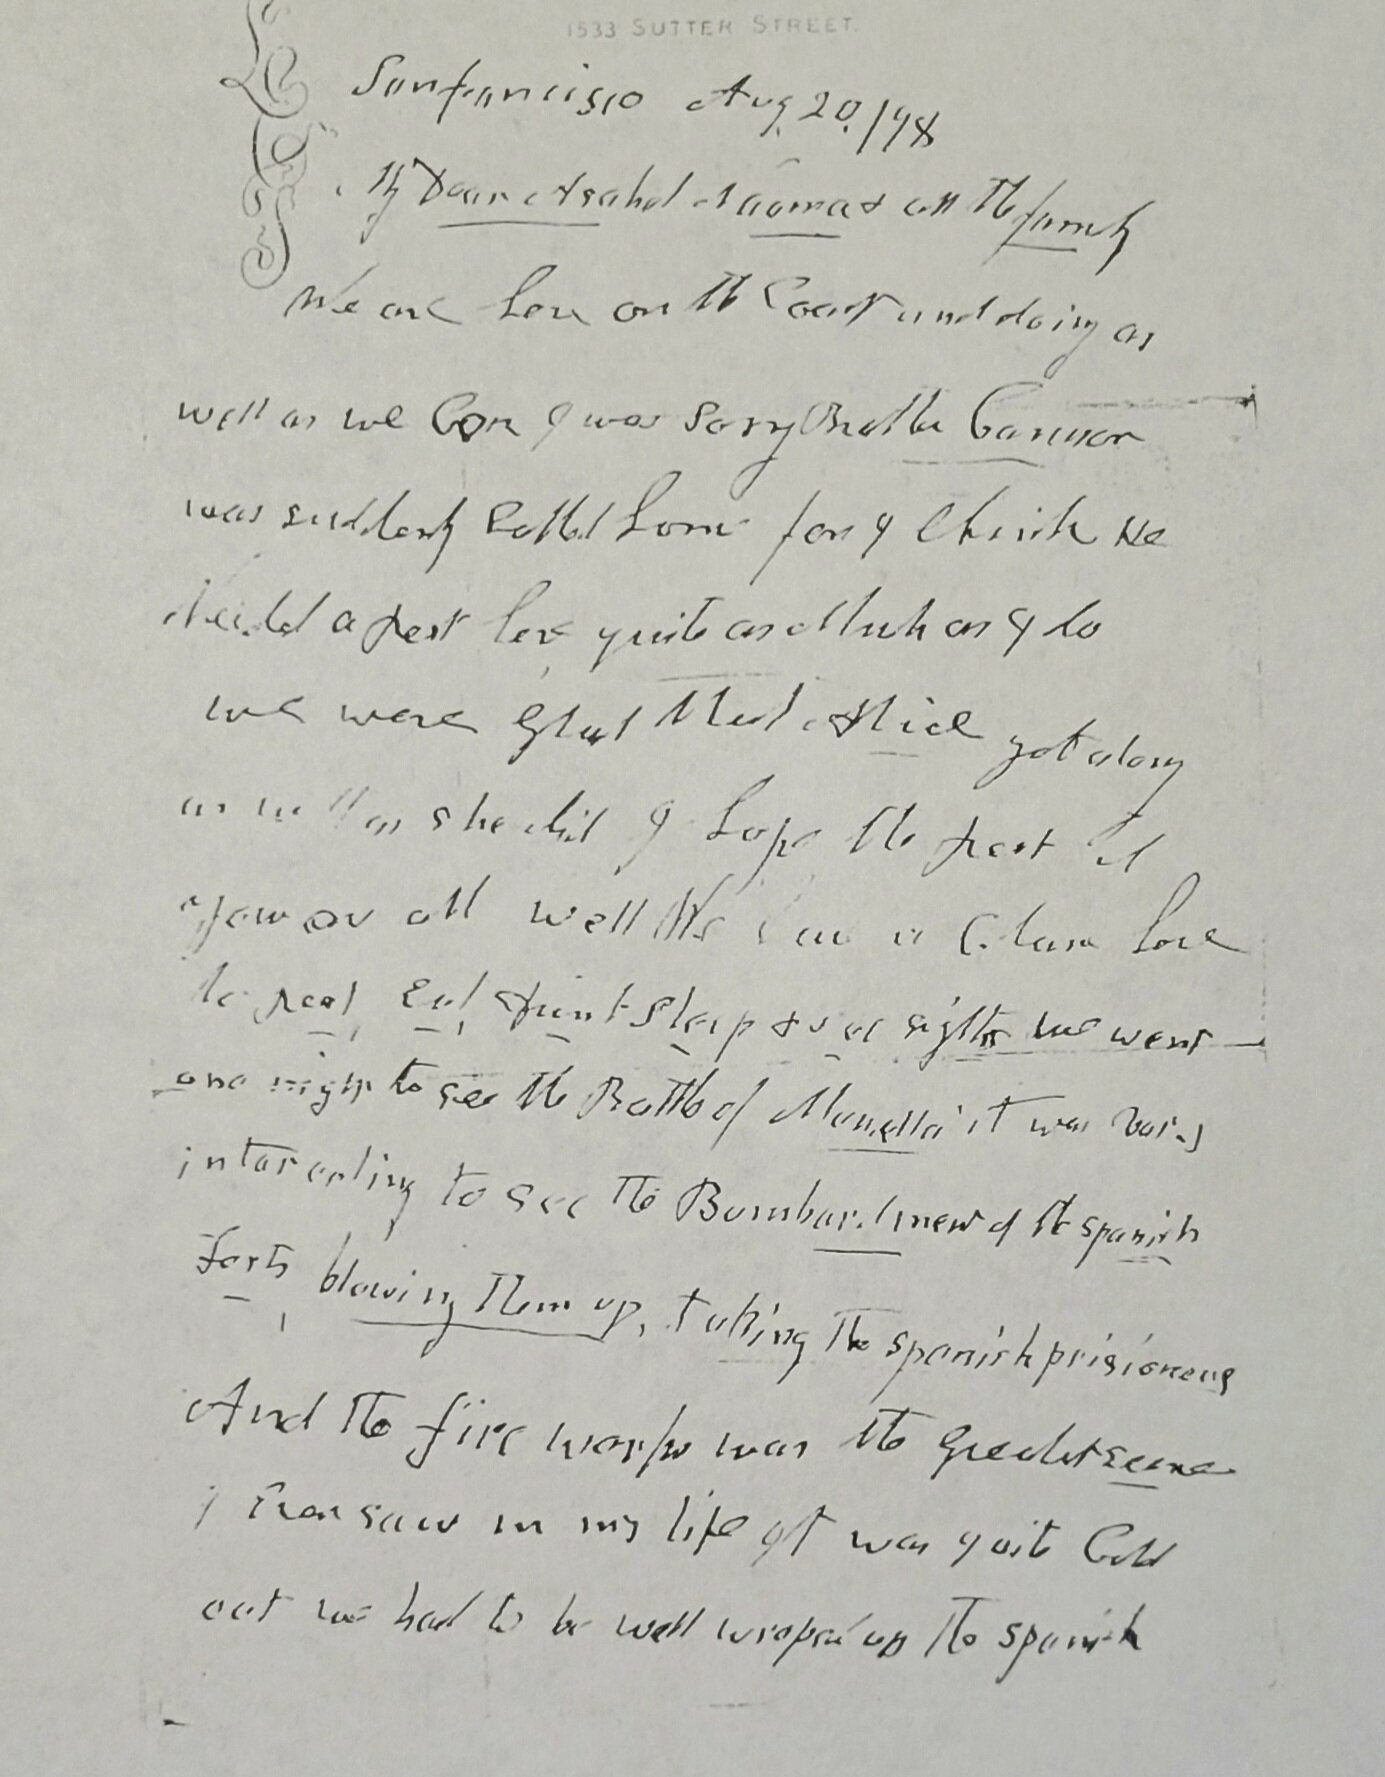 1533 SUTTER STREET.
Sanfrancisco Aug. 20./98
My Dear Asahel Naoma & all the family
We are here on the Coast and doing as
well as we Can I was Sorry Brother Cannon
was suddenly Called home for I think He
Needed a rest here quite as Much as I do
we were Glad that Alice got along
as well as she did I hope the rest of
you ar all well We have a Chance here
to rest, Eat, drink Sleep & see sights we went
one night to see the Battle of Manella it was very
interesting to see the Bombardment of the spanish
Forts, blowing them up, taking the spanish prisioneers
And the fire works was the Greatest scene
I Ever saw in my life It was quite Cold
out we had to be well wraped up the spanish